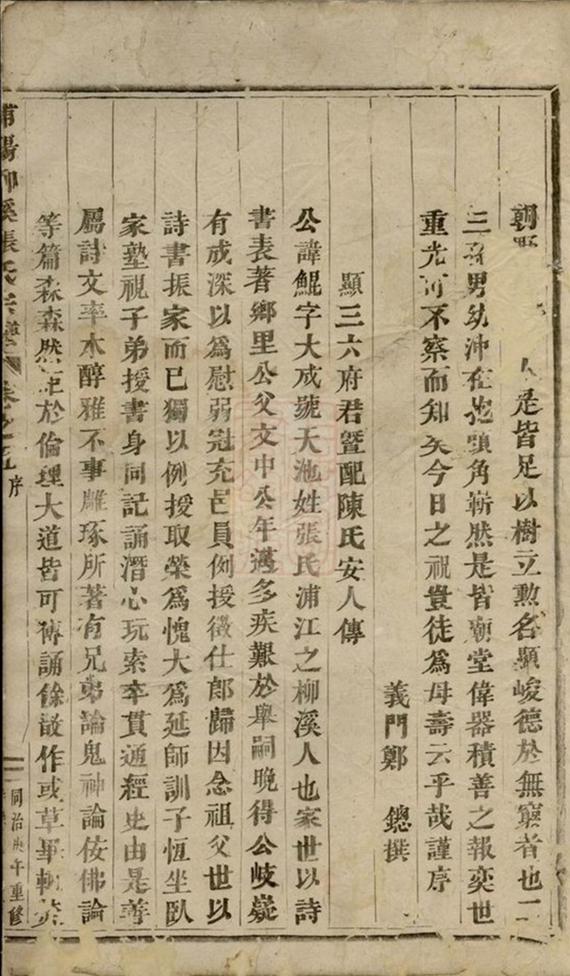 朝野 人是皆足以樹立勲名顯峻德於無窮者也二
三孫男幼沖在抱頭角嶄然是皆廟堂偉器積善之報奕世
重光可不察而知矣今日之祝豈徒為母壽云乎哉謹序
義門鄭 鏓撰
顯三六府君暨配陳氏安人傳
公諱鯤字大成號天池姓張氏浦江之柳溪人也家世以詩
書表著鄉里公父文中公年邁多疾艱於舉嗣晚得公岐嶷
有成深以為慰弱冠充邑員例授徵仕郎歸因念祖父世以
詩書振家而已獨以例授取榮為愧大為延師訓子恆坐臥
家塾視子弟授書身同記誦潛心玩索卒貫通經史由是善
屬詩文率本醇雅不事雕琢所著有兄弟論鬼神論佞佛論
等篇森森然 於倫理大道皆可傳誦餘散作或草畢輒焚
浦陽柳溪張氏宗譜 卷之 序
同治庚午重修